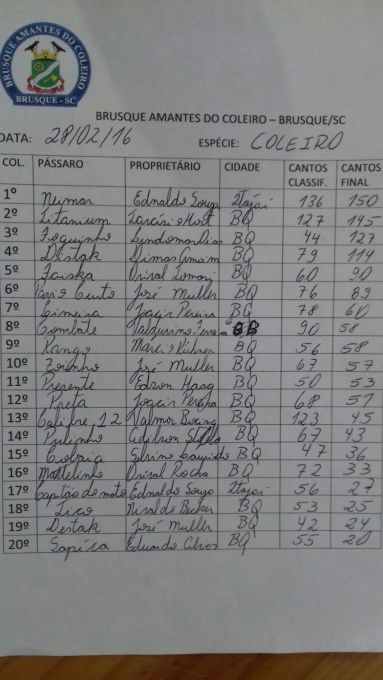 BRUSQUE AMANTES DO COLEIRO
BRUSQUE - SC
BRUSQUE AMANTES DO COLEIRO – BRUSQUE/SC
DATA: 28/02/16 ESPÉCIE: COLEIRO
COL. PÁSSARO PROPRIETÁRIO CIDADE CANTOS CLASSIF. CANTOS FINAL
1º Neimar Ednaldo Souza Itajaí 136 150
2º Titanium Tarcisio Hort BQ 127 145
3º Foguinho BQ 44 127
4º Destak Dimas BQ 79 114
5º Faiska Orival BQ 60 90
6º Pavio Curto José Muller BQ 76 89
7º Joacir Pereira BQ 78 60
8º Combate BQ 90 58
9º Rango Márcio Kühnen BQ 56 58
10º Zorinho José Muller BQ 67 57
11º Presente Edson Haag BQ 50 53
12º Preta Joacir Pereira BQ 68 51
13º Calibre 12 Valmor BQ 123 45
14º Pulinho Adilson BQ 67 43
15º BQ 47 36
16º Martelinho Orival Rocha BQ 72 33
17º Capitão do mato Ednaldo Souza Itajaí 56 27
18º Zico Nivaldo Becker BQ 53 25
19º Destak José Muller BQ 42 24
20º Sapéca Eduardo BQ 55 20